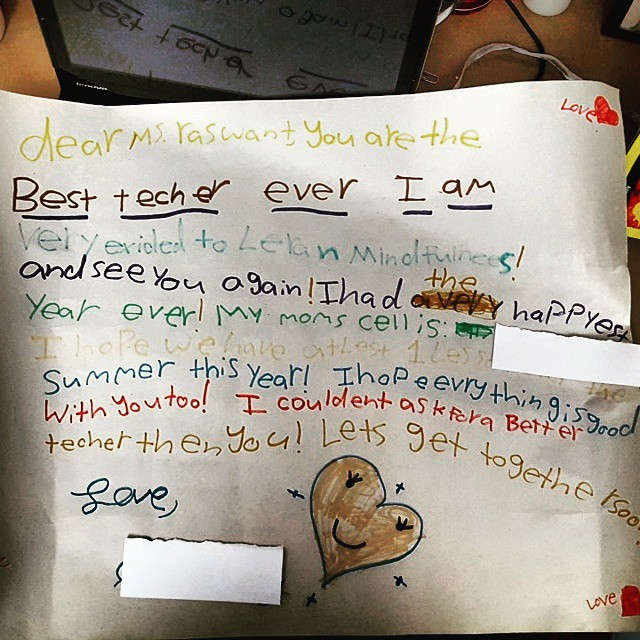 Love
dear Ms. raswant you are the
Best techer ever I am
very exided to Leran Mindfulnees!
and see you again! I had the happyest
Year ever! My moms cell is:
I hope we have atLest 1 Less the
Summer this year! I hope evrything is good
With you too! I couldent ask for a Better
techer then you! Lets get together soon!
Love,
Love